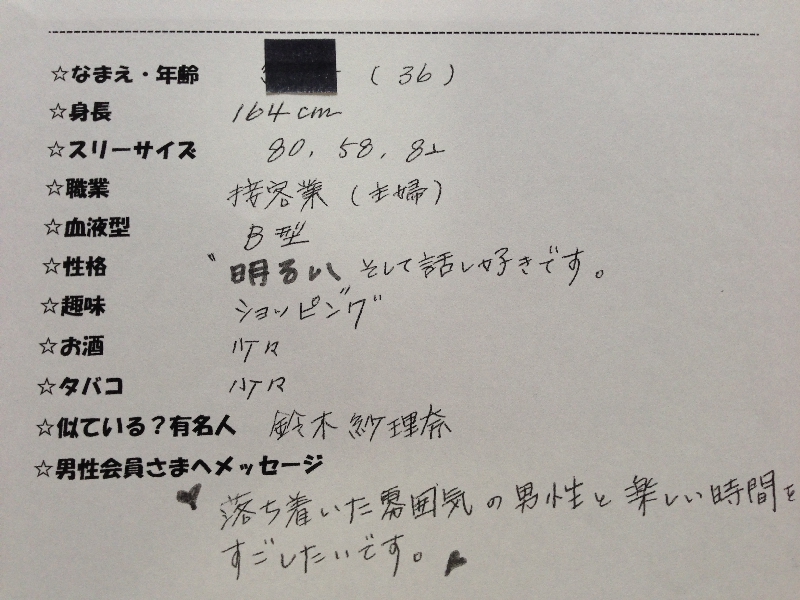 ☆なまえ・年齢 (36)
☆身長 164cm
☆スリーサイズ 80, 58, 82
☆職業 接客業(主婦)
☆血液型 B型
☆性格 明るい そして話し好きです。
☆趣味 ショッピング
☆お酒 少々
☆タバコ 少々
☆似ている?有名人 鈴木紗理奈
☆男性会員さまへメッセージ
落ち着いた雰囲気の男性と楽しい時間を
すごしたいです。